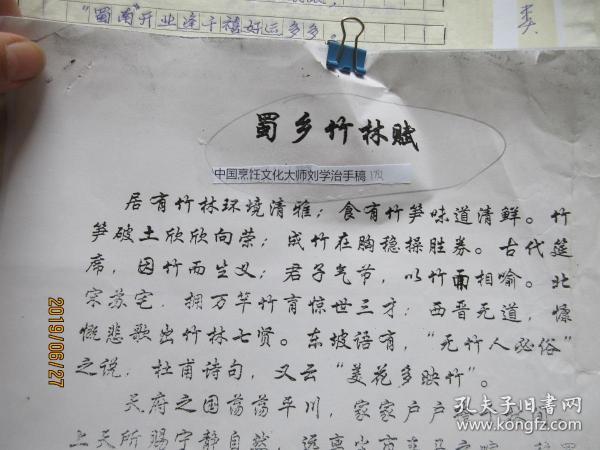 "蜀南"开业逢千禧好运多多。
类
蜀乡竹林赋
中国烹饪文化大师刘学治手稿
居有竹林环境清雅；食有竹笋味道清鲜。竹
笋破土欣欣向荣；成竹在胸稳操胜券。古代筵
席，因竹而生义；君子气节，以竹而相喻。北
宋苏宅，拥万竿竹育惊世三才；西晋无道，慷
慨悲歌出竹林七贤。东坡语有，"无竹人必俗"
之说，杜甫诗句，又云"美花多映竹"。
天府之国荡荡平川，家家户户
上天所赐宁静自然，远离
2019/06/27
孔夫子旧书网
www.kongfz.com